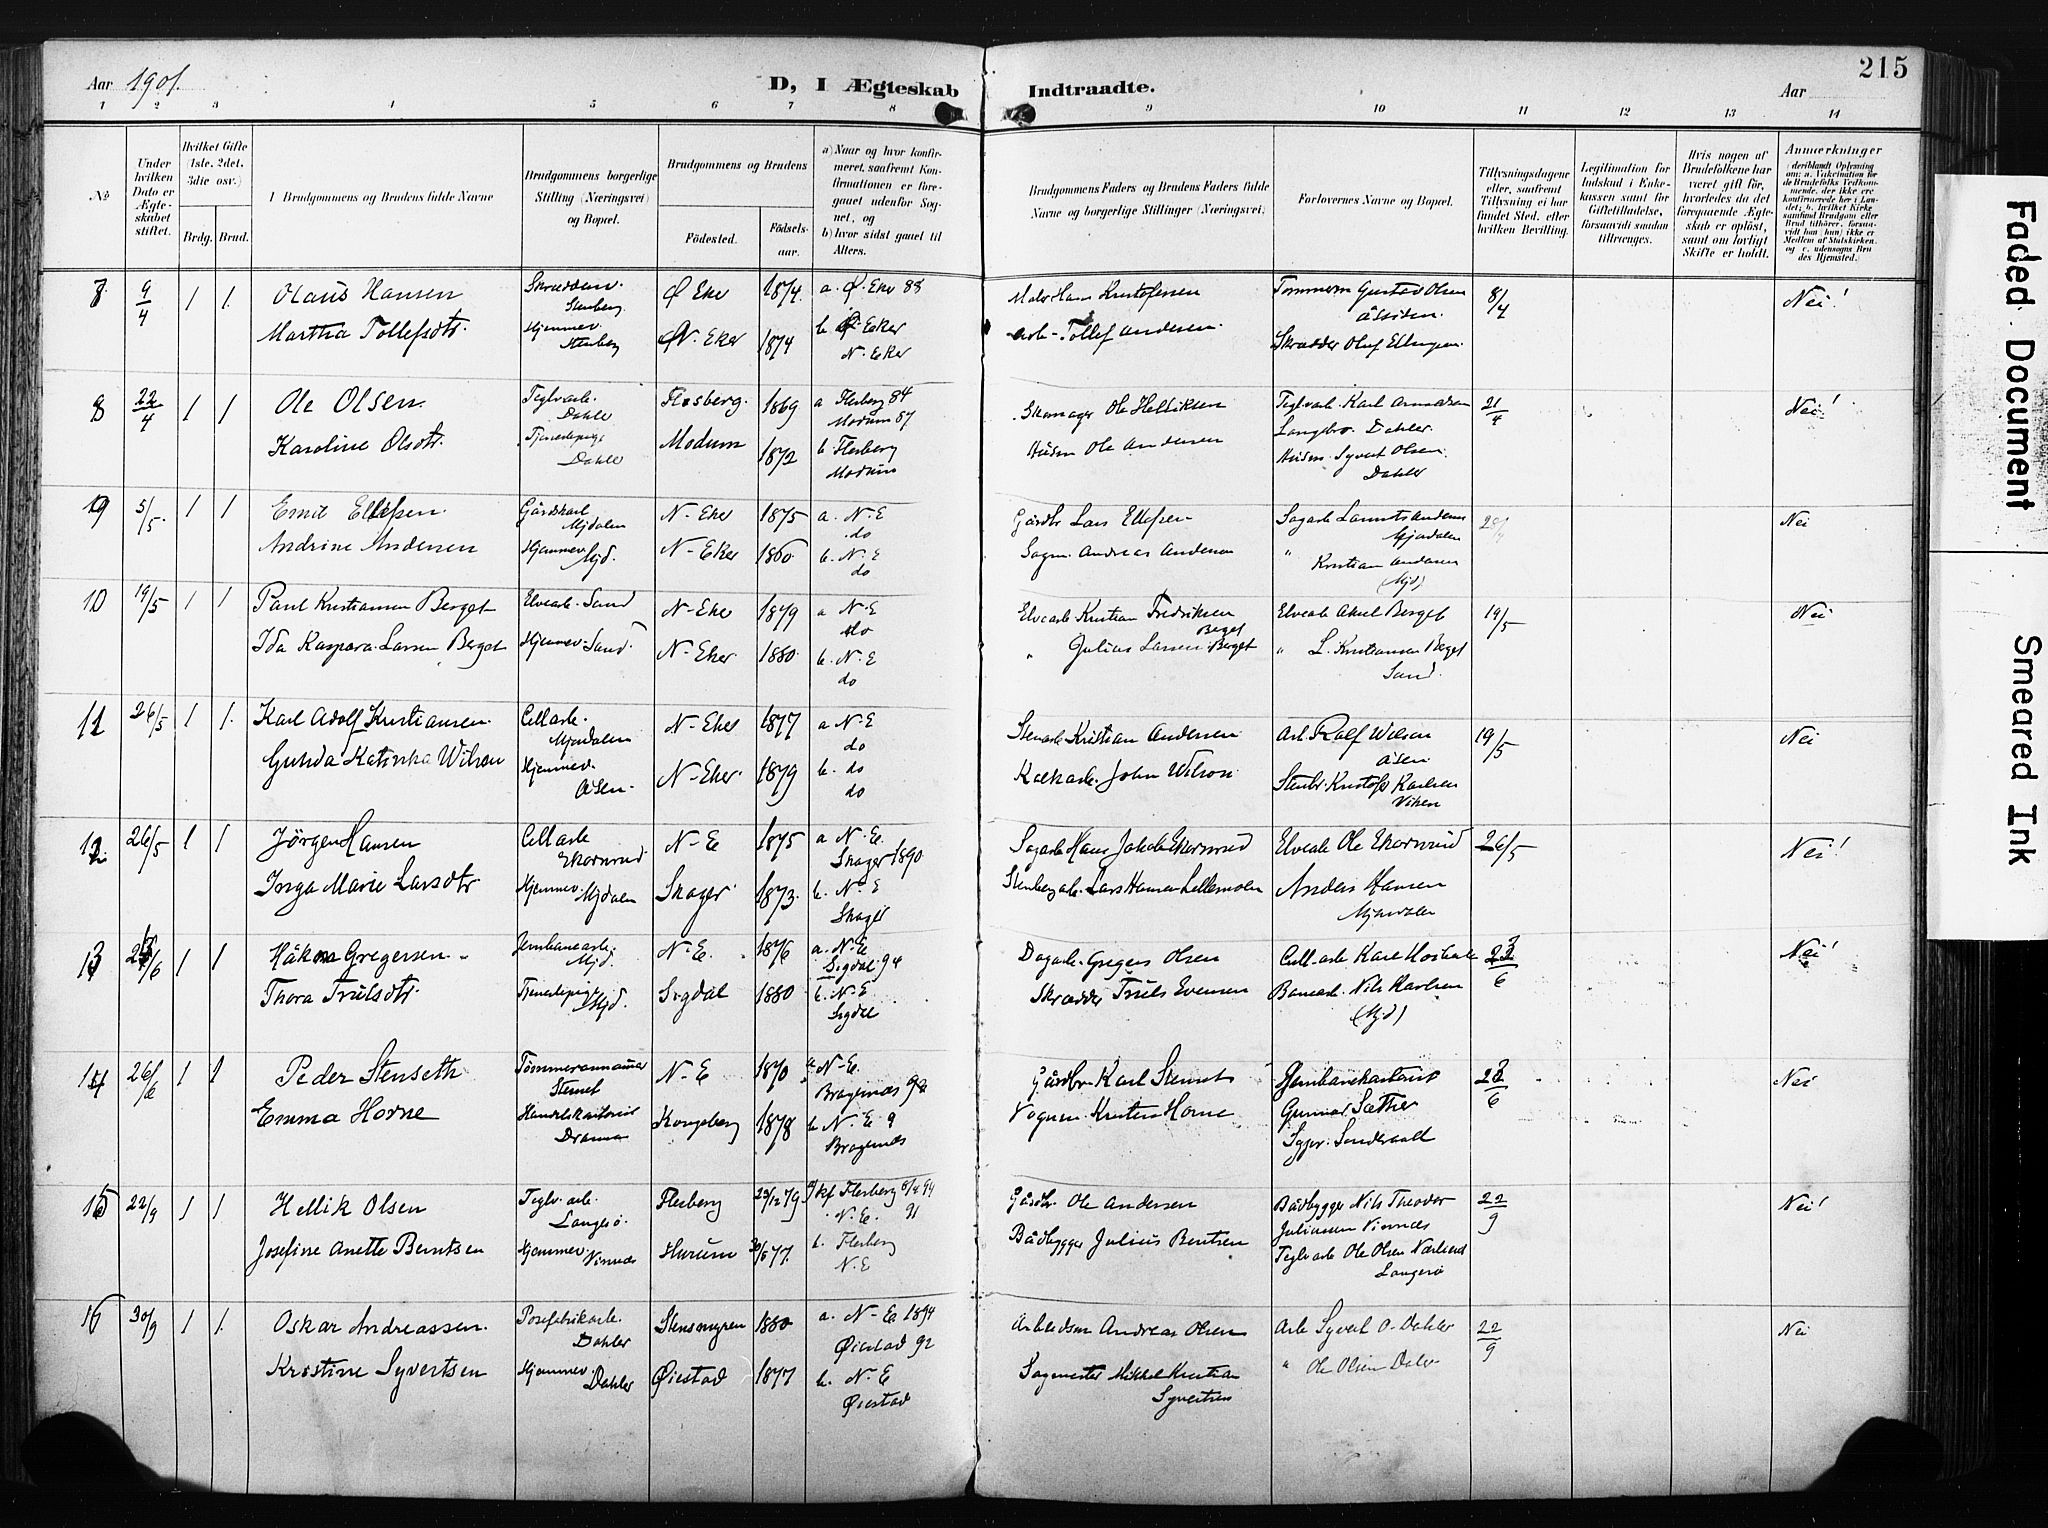 215
Aar 1901.
D, I Ægteskab Indtraadte.
Aar
1 2 3 4 5 6 7 8 9 10 11 12 13 14
No.
Under hvilken Dato er Ægteskabet stiftet.
Hvilket Gifte (1ste, 2det, 3die osv.)
Brdg. Brud.
I Brudgommens og Brudens fulde Navne
Brudgommens borgerlige Stilling (Næringsvei) og Bopæl.
Brudgommens og Brudens
Fødested.
Fødselsaar.
a) Naar og hvor konfirmeret, saafremt Konfirmationen er foregaaet udenfor Sognet, og
b) hvor sidst gaaet til Alters.
Brudgommens Faders og Brudens Faders fulde Navne og borgerlige Stillinger (Næringsvei)
Forlovernes Navne og Bopæl.
Tillysningsdagene eller, saafremt Tillysning ei har fundet Sted, efter hvilken Bevilling.
Legitimation for Indskud i Enkekassen samt for Giftetilladelse, forsaavidt saadan tiltrænges.
Hvis nogen af Brudefolkene har været gift før, hvorledes da det foregaaende Ægteskab er opløst, samt om lovligt Skifte er holdt.
Anmærkninger
(deriblandt Oplysning om: a. Vakcination for de Brudefolks Vedkommende, der ikke ere konfirmerede her i Landet; b. hvilket Kirkesamfund Brudgom eller Brud tilhører, forsaavidt han (hun) ikke er Medlem af Statskirken, og c. udensogns Brudes Hjemsted.)
7 9/4 1 1. Olaus Hansen Skrædder. Stenberg Ø Eker 1874. a. Ø. Eker 88 Maler Hans Kristofersen Tømmerm Gustav Olsen Åssiden. 8/4 Nei!
Martha Tollefsdtr. Hjemmev. Stenberg N. Eker 1874 b Ø. Eker N. Eker Arb. Tollef Andersen. Skrædder Oluf Ellingsen.
8 22/4 1 1 Ole Olsen. Teglvarb. Dahler Flesberg. 1869 a Flesberg 84 Modum 87 Skomager Ole Helliksen Teglvarb. Karl Langebro. Dahler 21/4 Nei!
Karoline Olsdtr. Tjenestepige Dahler Modum 1872 b Flesberg Modum Husm Ole Andersen Husm. Syvert Olsen. Dahler
9 5/5. 1 1 Emil Ellefsen. Gårdskarl Mjdalen N- Eker 1875 a. N. E do Gårdbr Lars Ellefsen Sagarb Andersen Mjøndalen Nei
Andrine Andersen Hjemmev Mjd. N- Eker 1880 b. N. E do Sagm. Andreas Andersen " Kristian Andersen (Mjd)
10 19/5 1 1 Paul Kristiansen Berget Elvearb. Sand N- Eker 1879 a N. E do Elvearb Kristian Fredriksen Berget Elvearb Berget 19/5 Nei
Ida Kaspara Larsen Berget Hjemmev. Sand. N- Eker 1880. b. N. E do " Julius Larsen Berget " L. Kristiansen Berget Sand.
11 26/5 1 1. Karl Adolf Kristiansen. Cellarb. Mjøndalen N- Eker 1877 a N. E do Stenarb Kristian Andersen Arb. Rolf Wilson Åsen 19/5 Nei
Gunda Katinka Wilson Hjemmev. Åsen. N- Eker. 1879 b. do do Kalkarb. John Wilson. Stenbr. Kristofer Karlsen Viken
12 26/5 1 1 Jörgen Hansen Cellarb Ekornrud. N- E 1875 a N. E. Skoger 1890 Sagarb Hans Jakobs Ekornrud Elvearb Ole Ekornrud 26/5 Nei!
Inga Marie Larsdtr Hjemmev. Mjdalen Skoger 1873. b. N. E Skoger Lars Hansen Lillemoen Anders Hansen Mjøndalen
13 1 1 Håkon Gregersen. Jernbanearb. Mjd. N. E. 1876 a. N. E Sigdal 94 Dagarb. Gregers Olsen Cell-arb Karl 23/6 Nei!
Thora Trulsdtr. Tjenestepige Mjd. Sigdal 1880 b. N. E Sigdal Skrædder Truls Evensen Banearb. Nils Karlsen (Mjd)
14 26/6 1 1 Peder Stenseth Stenset N- E 1870 a N- E. Bragernæs 92 Gårdbr Karl Stenset Jernbane Gunnar Sæther 23/6 Nei
Emma Horne Drammen Kongsberg 1878 b N. E Bragernæs Vognm Kristen Horne
15 22/9 1 1 Hellik Olsen Teglv. arb. Langesö. Flesberg 23/12 79 kf. Flesberg 94 N. E. 91 Gårdbr. Ole Andersen Bådbygger Nils Theodor Juliussen Vinnæs 22/9 Nei!
Josefine Anette Berntsen Hjemmev Vinnæs Hurum 77. b. Flesberg N. E Bådbygger Julius Bentsen Teglvarb Ole Olsen Langesö
16 30/9 1 1. Oskar Andreassen. Posefabrikarb. Dahler Stensmyren 1880 a. N- E 1894 Øiestad 92 Arbeidsm Andreas Olsen Arb Syvert O. Dahler 22/9 Nei
Kristine Syvertsen Hjemmev Dahler Øiestad 1877 b. N. E Øiestad Sagmester Mikkel Kristian Syvertsen " Ole Olsen Daler
Faded Document
Smeared Ink